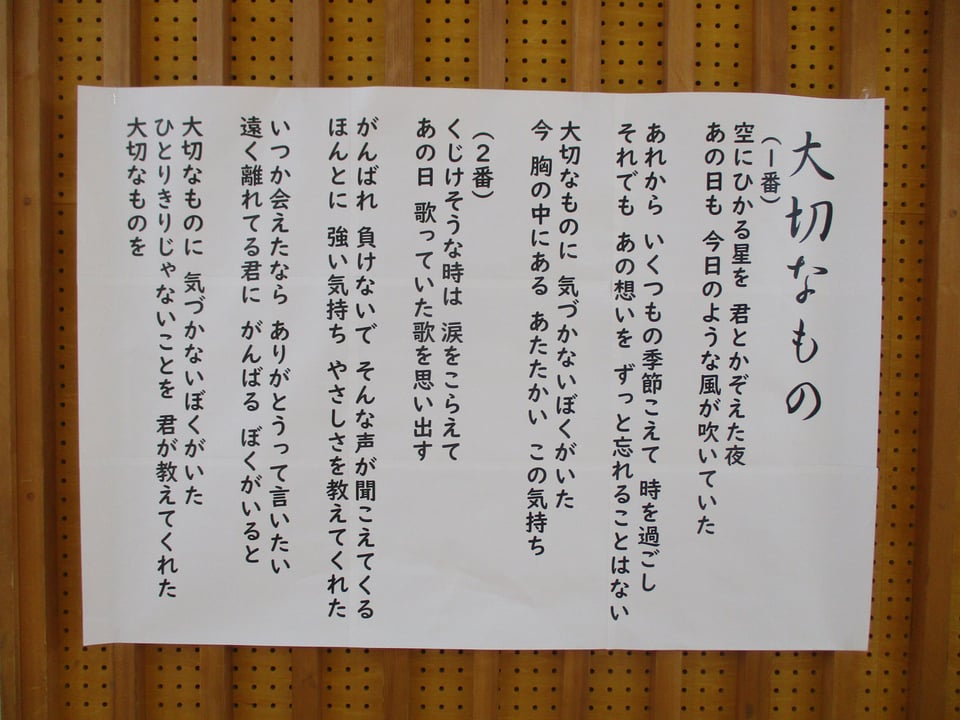 大切なもの
(1番)
空にひかる星を 君とかぞえた夜
あの日も 今日のような風が吹いていた
あれから いくつもの季節こえて 時を過ごし
それでも あの想いを ずっと忘れることはない
大切なものに 気づかないぼくがいた
今 胸の中にある あたたかい この気持ち
(2番)
くじけそうな時は 涙をこらえて
あの日 歌っていた歌を思い出す
がんばれ 負けないで そんな声が聞こえてくる
ほんとに 強い気持ち やさしさを教えてくれた
いつか会えたなら ありがとうって言いたい
遠く離れてる君に がんばる ぼくがいると
大切なものに 気づかないぼくがいた
ひとりきりじゃないことを 君が教えてくれた
大切なものを